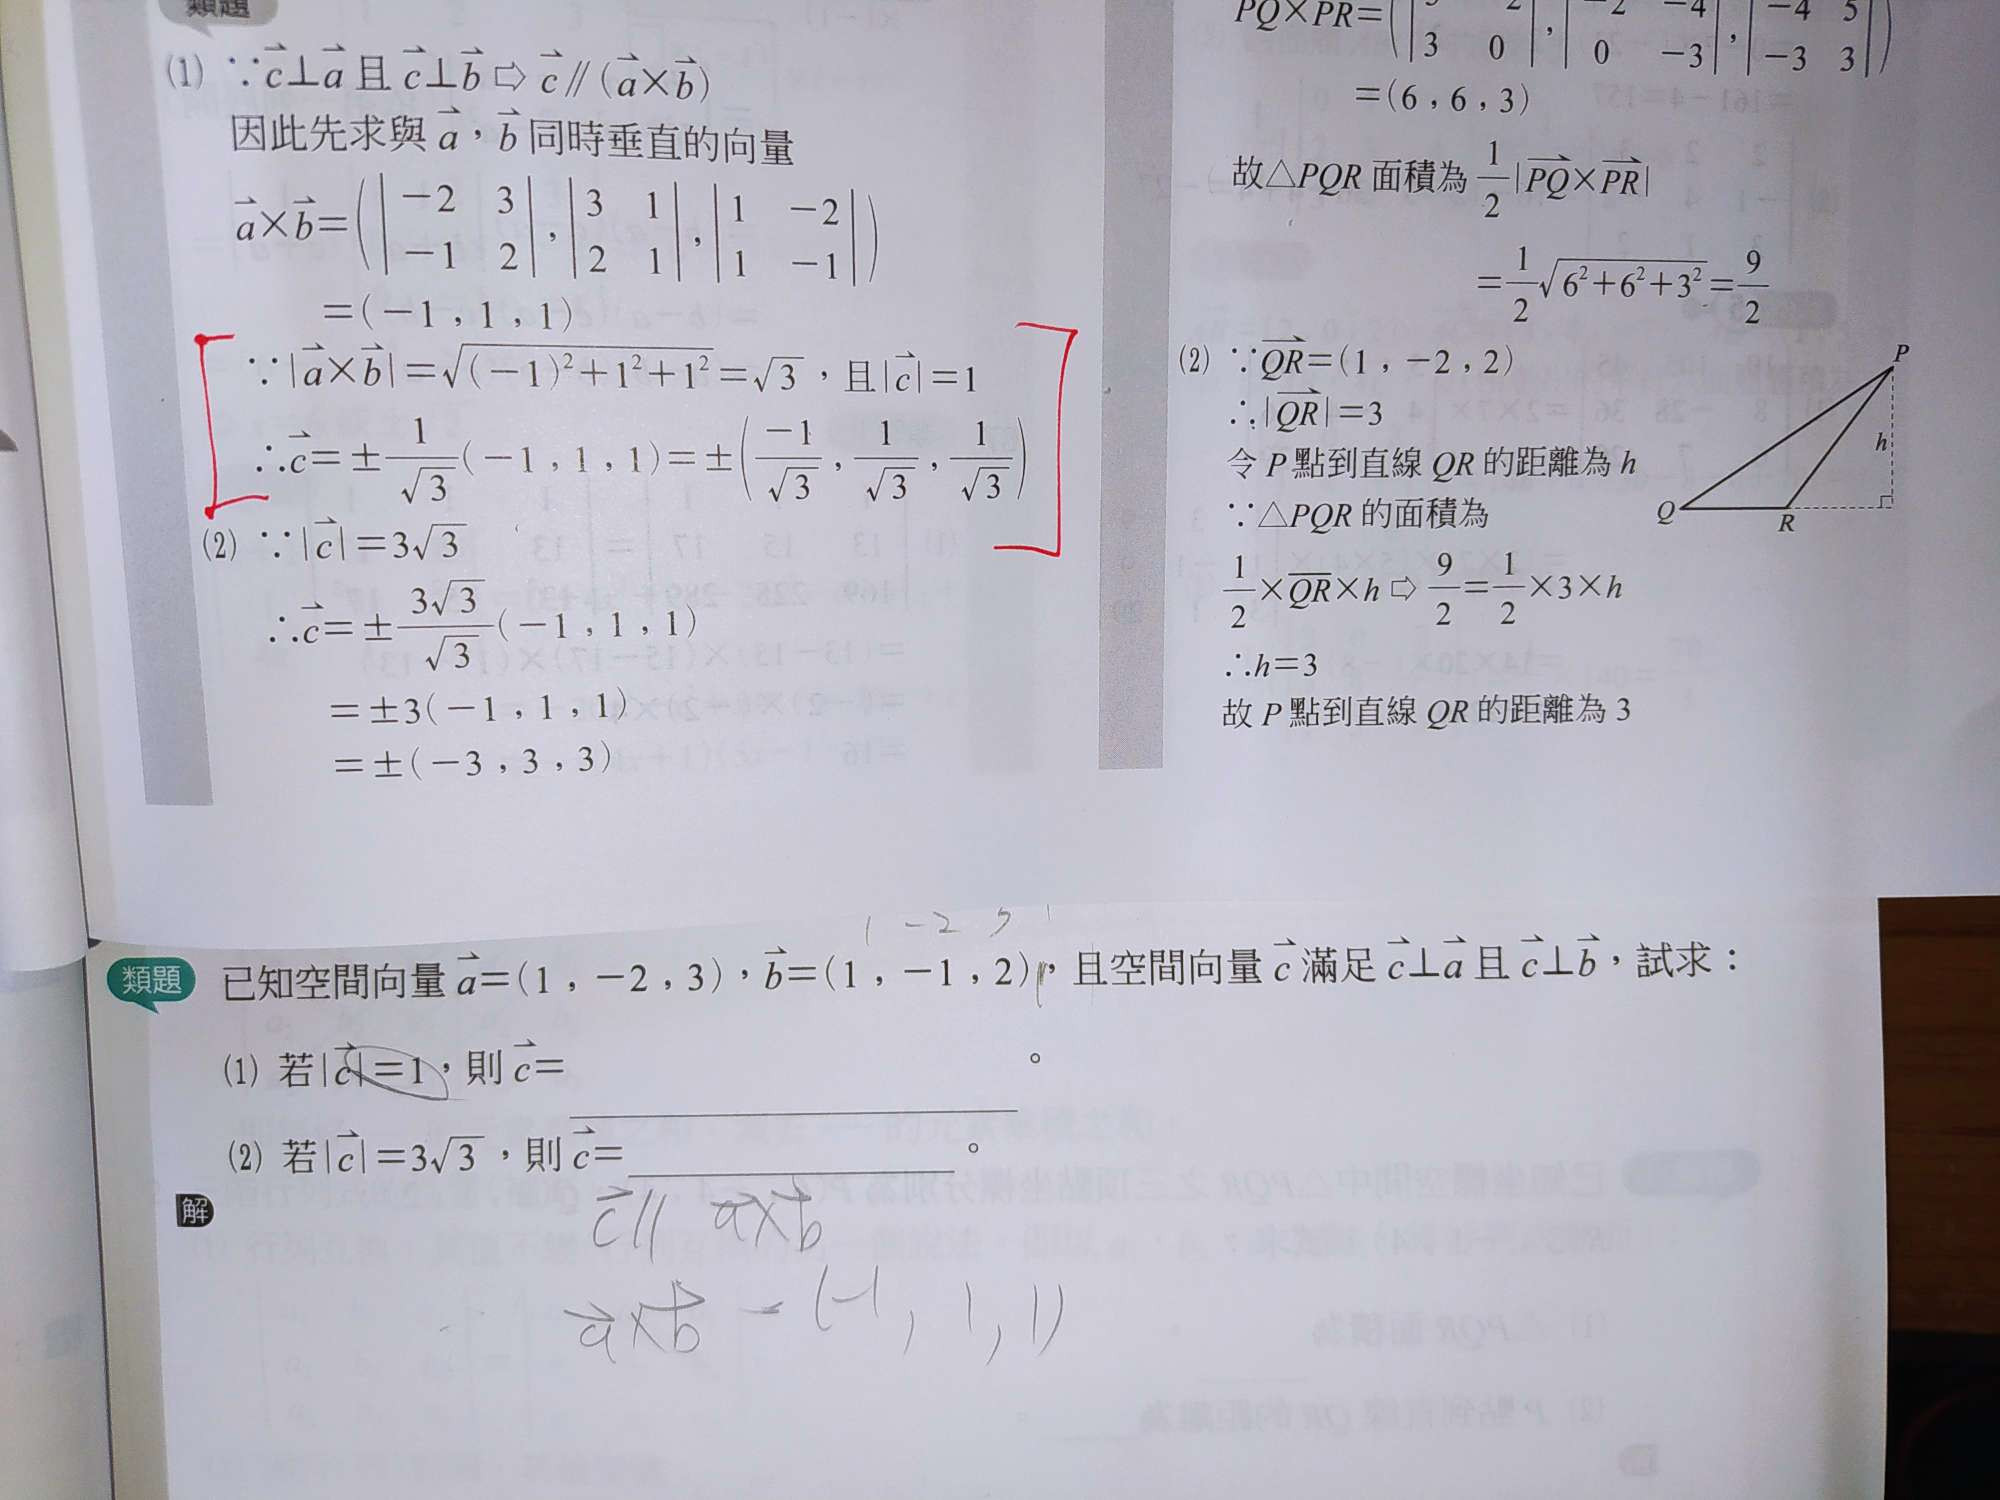 類題
(1) ∵c⃗⊥a⃗ 且 c⃗⊥b⃗ ⇨ c⃗∥(a⃗×b⃗)
因此先求與 a⃗，b⃗ 同時垂直的向量
a⃗×b⃗=(|−2 3; −1 2|, |3 1; 2 1|, |1 −2; 1 −1|)
=(−1 , 1 , 1)
∵|a⃗×b⃗|=√((−1)²+1²+1²)=√3，且|c⃗|=1
∴c⃗=±1/√3(−1 , 1 , 1)=±(−1/√3 , 1/√3 , 1/√3)
(2) ∵|c⃗|=3√3
∴c⃗=±3√3/√3(−1 , 1 , 1)
=±3(−1 , 1 , 1)
=±(−3 , 3 , 3)
PQ×PR=(|5 2; 3 0|, |−2 −4; 0 −3|, |−4 5; −3 3|)
=(6 , 6 , 3)
故△PQR 面積為 1/2|PQ⃗×PR⃗|
=1/2√(6²+6²+3²)=9/2
(2) ∵QR⃗=(1 , −2 , 2)
∴|QR⃗|=3
令 P 點到直線 QR 的距離為 h
∵△PQR 的面積為
1/2×QR×h ⇨ 9/2=1/2×3×h
∴h=3
故 P 點到直線 QR 的距離為 3
P
h
Q
R
1 −2 3 1
類題 已知空間向量 a⃗=(1 , −2 , 3)，b⃗=(1 , −1 , 2)，且空間向量 c⃗ 滿足 c⃗⊥a⃗ 且 c⃗⊥b⃗，試求：
(1) 若|c⃗|=1，則 c⃗=______。
(2) 若|c⃗|=3√3，則 c⃗=______。
解
c⃗// a⃗×b⃗
a⃗×b⃗ = (−1, 1, 1)